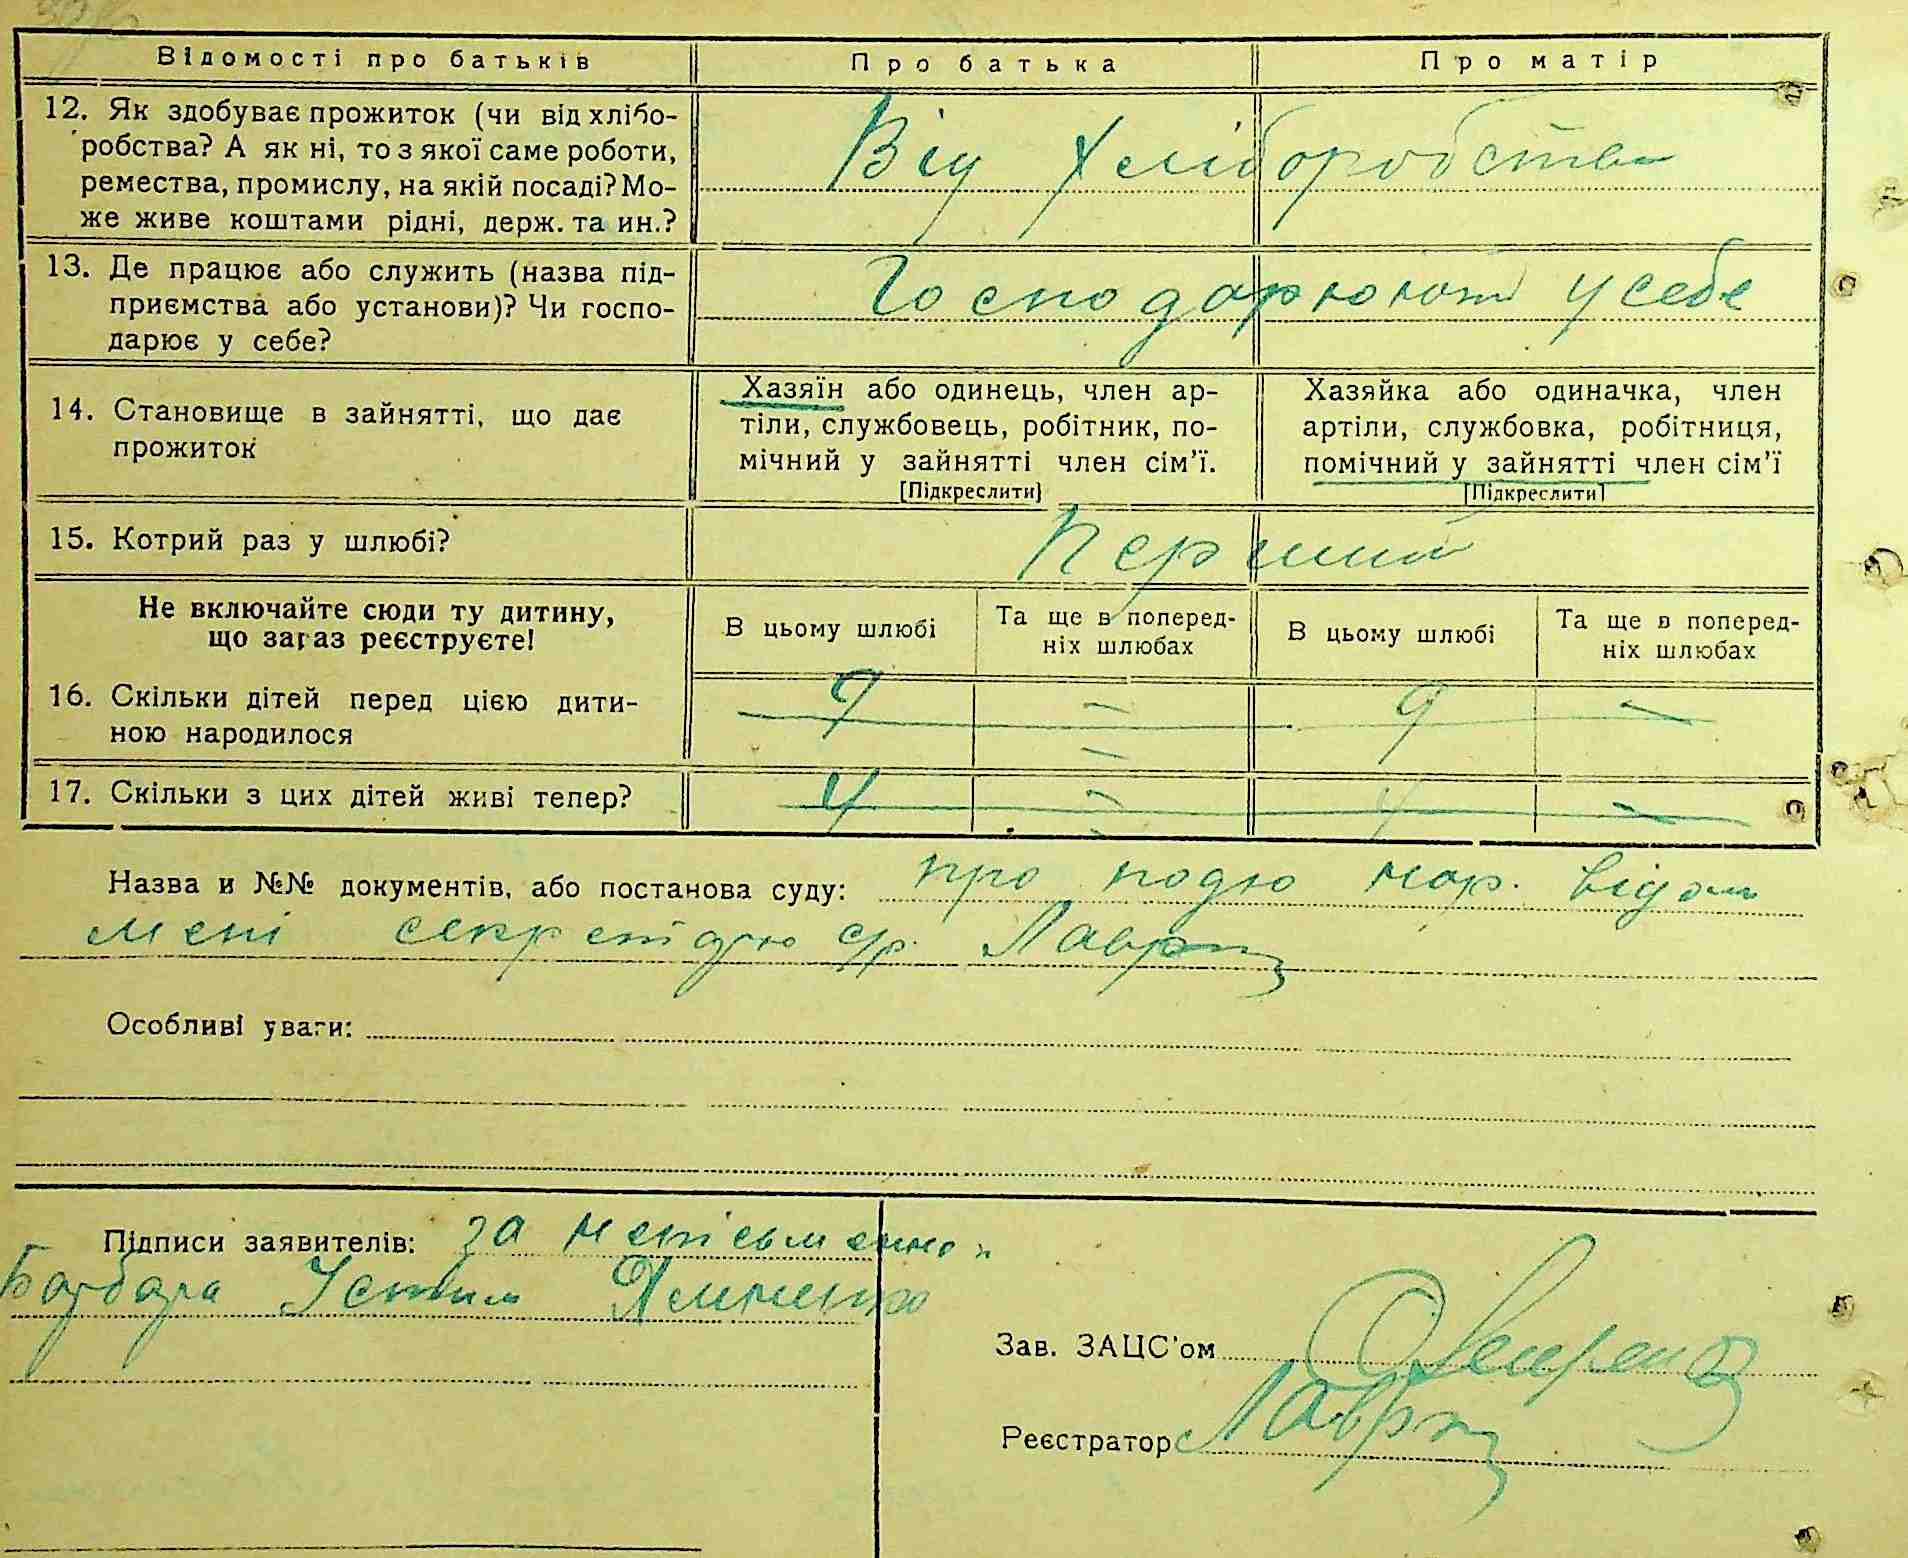 Відомості про батьків	Про батька	Про матір
12. Як здобуває прожиток (чи від хлібо-
робства? А як ні, то з якої саме роботи,
ремества, промислу, на якій посаді? Мо-
же живе коштами рідні, держ. та ин.?
Від Хліборобства
13. Де працює або служить (назва під-
приємства або установи)? Чи госпо-
дарює у себе?
Господарюють у себе
14. Становище в зайнятті, що дає
прожиток
Хазяїн або одинець, член ар-
тіли, службовець, робітник, по-
мічний у зайнятті член сім'ї.
[Підкреслити]
Хазяйка або одиначка, член
артіли, службовка, робітниця,
помічний у зайнятті член сім'ї
[Підкреслити]
15. Котрий раз у шлюбі?
Перший
Не включайте сюди ту дитину,
що зараз реєструєте!
В цьому шлюбі
Та ще в поперед-
ніх шлюбах
В цьому шлюбі
Та ще в поперед-
ніх шлюбах
16. Скільки дітей перед цією дити-
ною народилося
9 – 9 –
17. Скільки з цих дітей живі тепер?
4 – 4 –
Назва и №№ документів, або постанова суду: про подію нар. відом
мені секретарю с/р.
Особливі уваги:
Підписи заявителів: за неписьменно
Барбара Устим Яременко
Зав. ЗАЦС'ом
Реєстратор